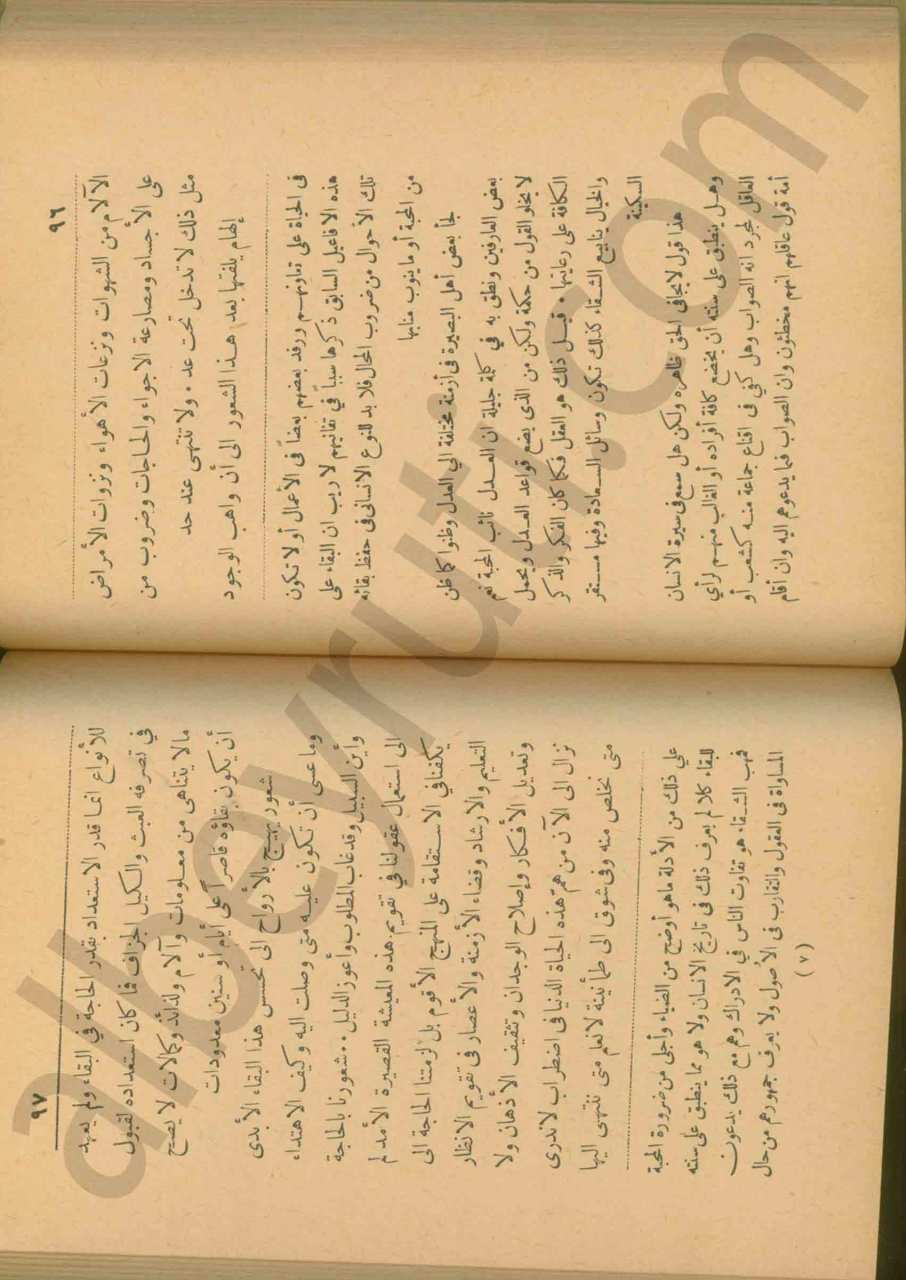 ٩٦
الآلام من الشهوات ونزعات الأهواء ونزوات الأمراض
على الأجساد ومصارعة الاجواء والحاجات وضروب من
مثل ذلك لا تدخل تحت عد . ولا تنتهى عند حد
إلهام يلفتها بعد هذا الشعور الى أن واهب الوجود
فى الحياة على تعاونهم ورفد بعضهم بعضاً فى الأعمال أو لا تكون
هذه الافاعيل السابق ذكرها سبباً في تفانيهم لا ريب ان البقاء على
تلك الأحوال من ضروب المحال فلا بد للنوع الانسانى فى حفظ بقائه
من المحبة أو ما ينوب منابها
لجأ بعض أهل البصيرة فى أزمنة مختلفة الى العدل وظنوا كما ظن
بعض العارفين ونطق به في كلمة جليلة ان العدل نائب المحبة نعم
لا يخلو القول من حكمة ولكن من الذى يضع قواعد العدل ويحمل
الكافة على رعايتها . قيل ذلك هو العقل فكما كان الفكر والذكر
والخيال ينابيع الشقاء كذلك تكون وسائل السعادة وفيها مستقر
السكينة
هذا قول لا يجافى الحق ظاهره ولكن هل سمع فى سيرة الانسان
وهل ينطبق على سنته أن يخضع كافة أفراده أو الغالب منهم لرأي
العاقل لمجرد انه الصواب وهل كفى فى اقناع جماعة منه كشعب أو
أمة قول عاقلهم انهم مخطئون وان الصواب فيما يدعوهم اليه وان أقام
٩٧
للأنواع انما قدر الاستعداد بقدر الحاجة في البقاء ولم يعهد
في تصرفه العبث والكيل الجزاف فما كان استعداده لقبول
مالا يتناهى من معلومات وآلام ولذائذ وكمالات لا يصح
أن يكون بقاؤه قاصراً على أيام أو سنين معدودات
شعور يهيج بالأرواح الى تحسس هذا البقاء الأبدى
وما عسى أن تكون عليه متى وصلت اليه وكيف الاهتداء
وأين السبيل وقد غاب المطلوب وأعوز الدليل . . شعورنا بالحاجة
الى استعمال عقولنا في تقويم هذه المعيشة القصيرة الأمد لم
يكفنا في الاستقامة على المنهج الأقوم بل لزمتنا الحاجة الى
التعليم والارشاد وقضاء الأزمنة والأعصار فى تقويم الانظار
وتعديل الأفكار وإصلاح الوجدان وتثقيف الأذهان ولا
نزال الى الآن من هم هذه الحياة الدنيا فى اضطراب لا ندرى
متى نخلص منه وفى شوق الى طمأنينة لا نعلم متى ننتهى اليها
على ذلك من الأدلة ما هو أوضح من الضياء وأجلى من ضرورة المحبة
للبقاء كلا لم يعرف ذلك فى تاريخ الانسان ولا هو مما ينطبق على سنته
فمهب الشقاء هو تفاوت الناس في الادراك وهم مع ذلك يدعون
المساواة فى العقول والتقارب فى الأصول ولا يعرف جمهورهم من حال
( ٧ )
albeyruti.com